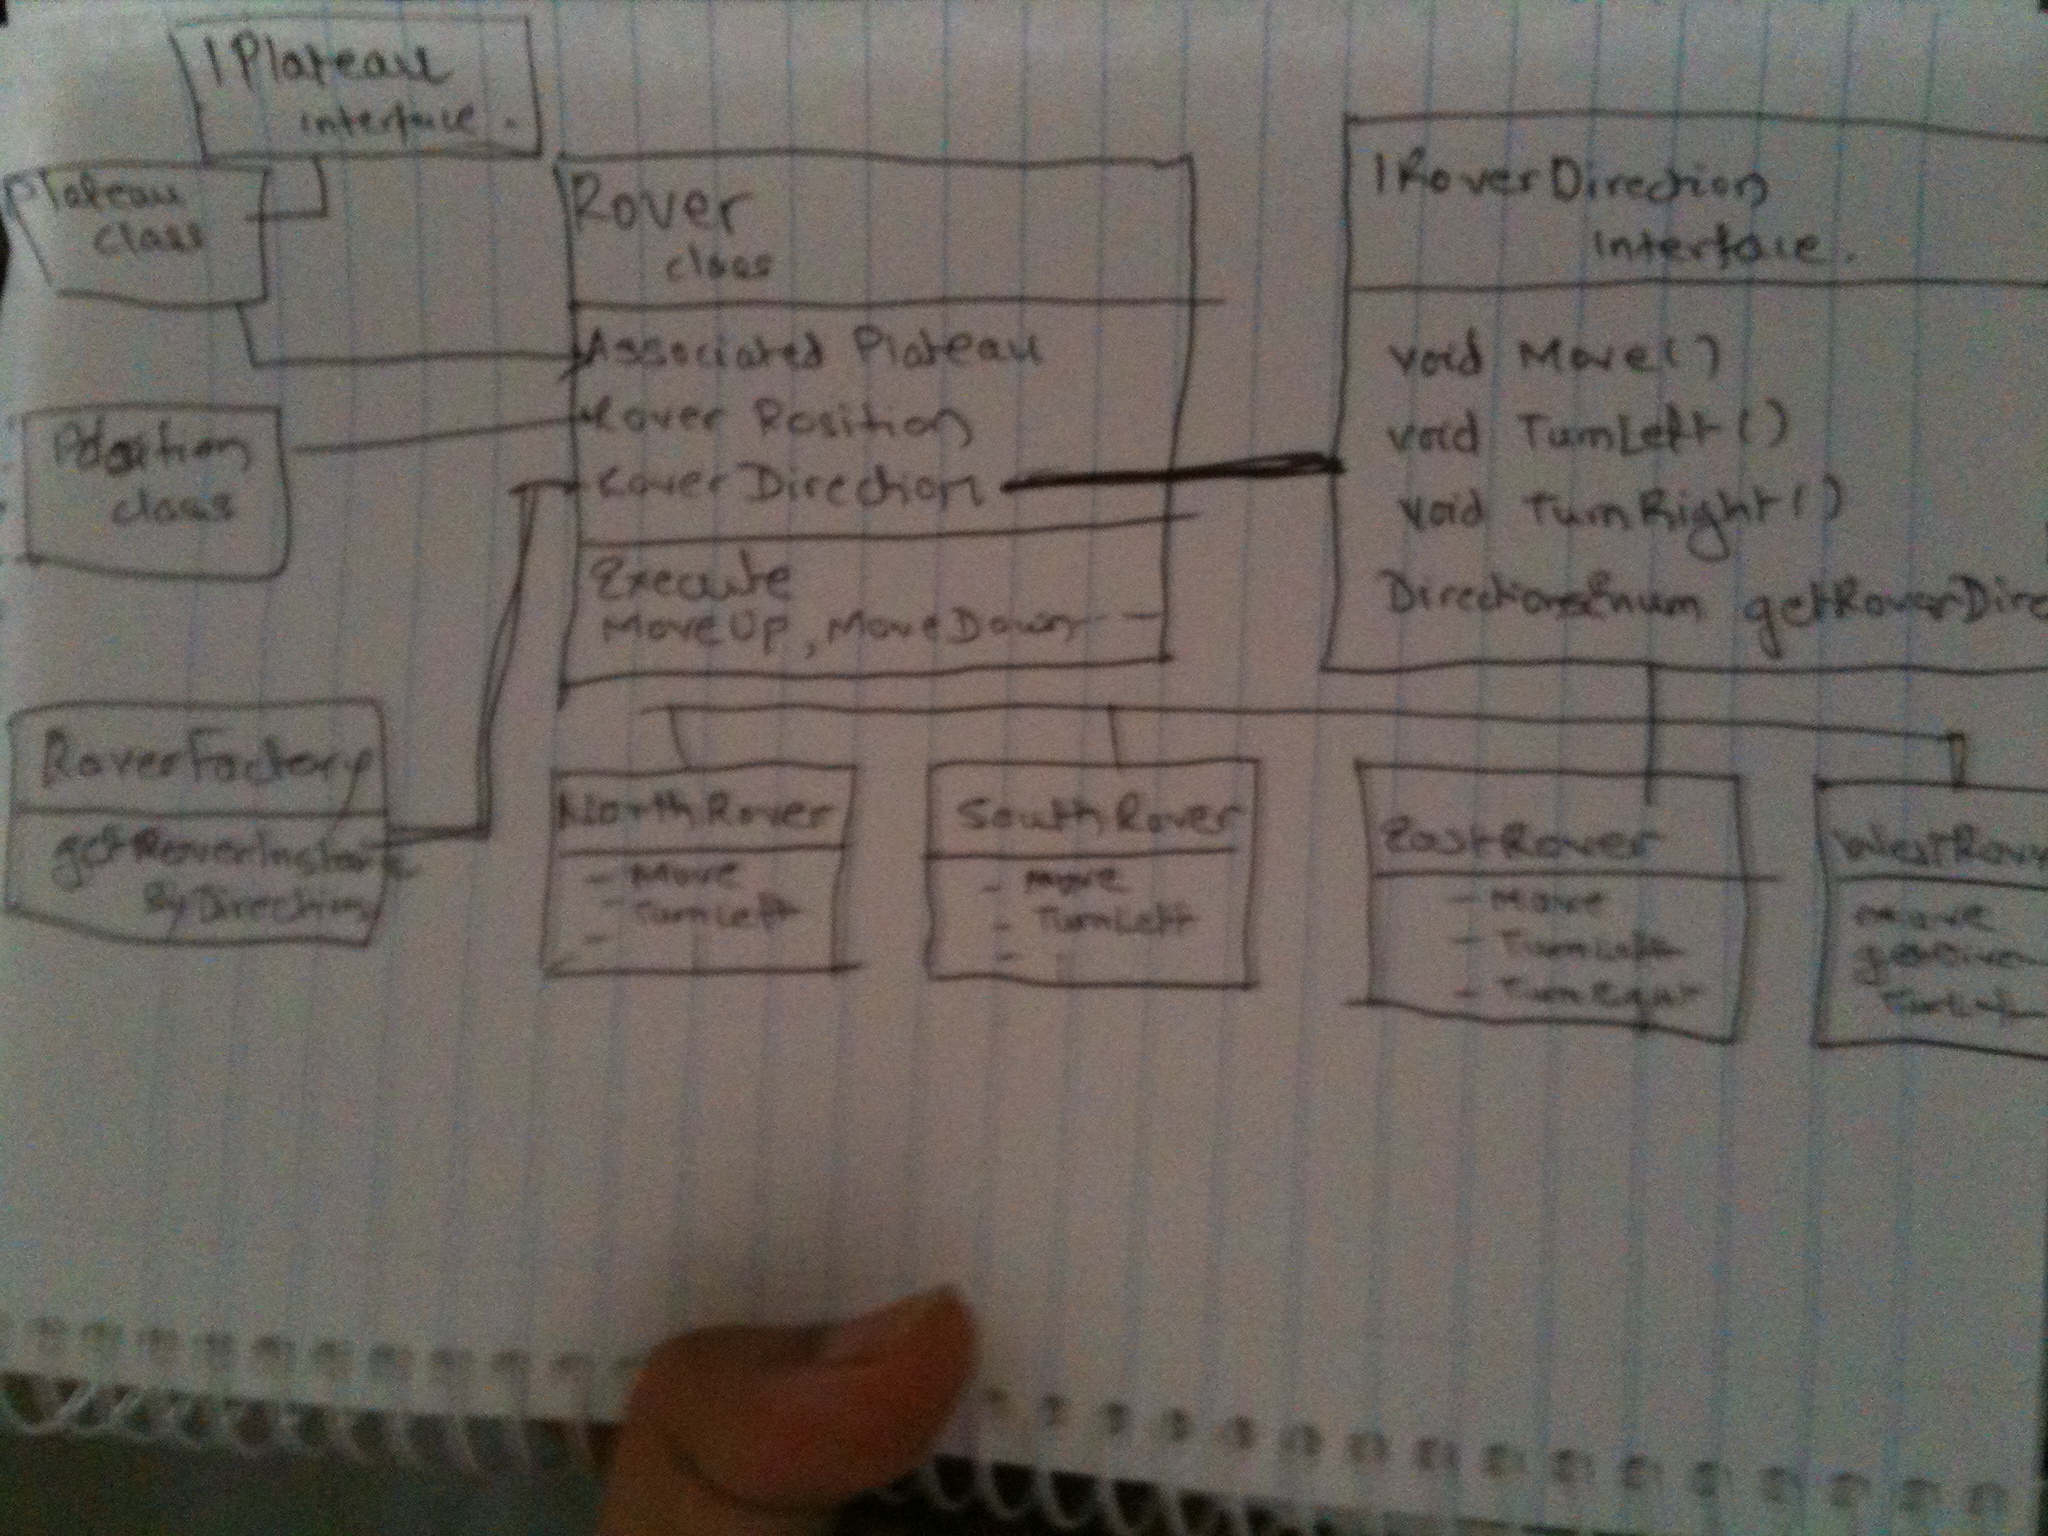 IPlateau
Interface.
Plateau
class
Position
class
RoverFactory
getRoverInstance
ByDirection
Rover
class
Associated Plateau
Rover Position
RoverDirection
Execute
MoveUp, MoveDown, -
IRoverDirection
Interface.
void Move()
void TurnLeft()
void TurnRight()
DirectionsEnum getRoverDirec
NorthRover
- Move
- TurnLeft
-
SouthRover
- Move
- TurnLeft
-
EastRover
- Move
- TurnLeft
WestRove
move